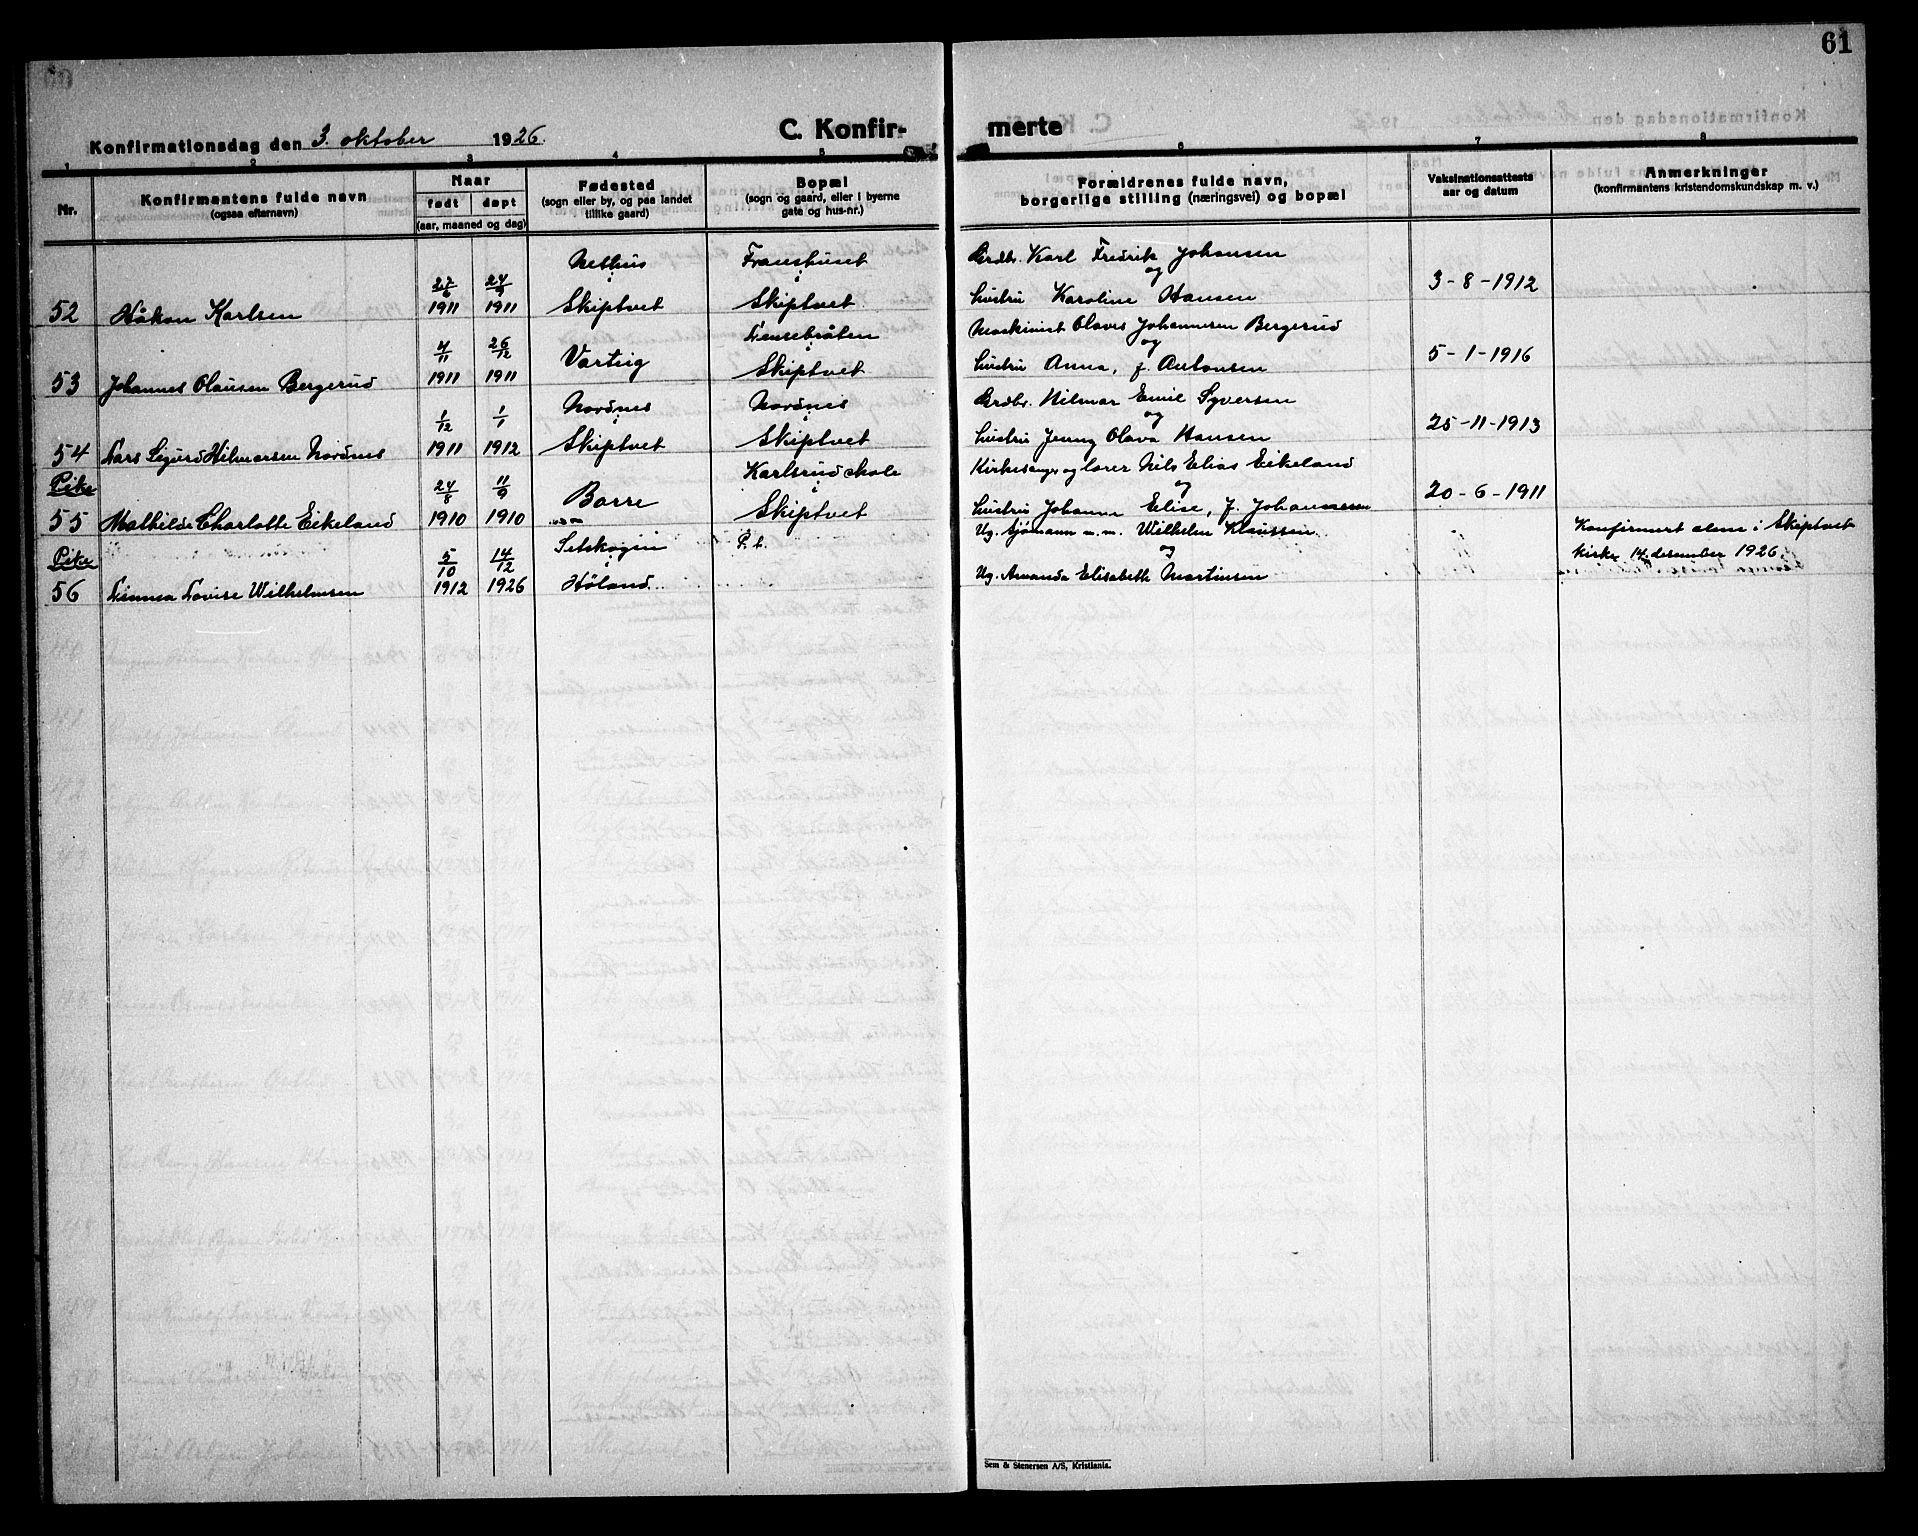 61
Konfirmationsdag den 3. oktober 1926.
C. Konfir-
merte
1 2 3 4 5 6 7 8
Nr.
Konfirmantens fulde navn
(ogsaa efternavn)
Naar
født døpt
(aar, maaned og dag)
Fødested
(sogn eller by, og paa landet
tillike gaard)
Bopæl
(sogn og gaard, eller i byerne
gate og hus-nr.)
Forældrenes fulde navn,
borgerlige stilling (næringsvei) og bopæl
Vaksinationsattests
aar og datum
Anmerkninger
(konfirmantens kristendomskundskap m. v.)
52 Håkon Karlsen
27/6 1911
24/9 1911
i
Skiptvet
Franshuset
i
Skiptvet
Grdbr. Karl Fredrik Johansen
og
hustru Karoline Hansen
3-8-1912
53 Johannes Olausen Bergerud
4/11 1911
26/12 1911
Varteig
i
Skiptvet
Maskinist Olaves Johannesen Bergerud
og
hustru Anna, f. Antonsen
5-1-1916
54 Lars Sigurd Hilmarsen Nordnes
1/12 1911
1/1 1912
Nordnes
i
Skiptvet
Nordnes
i
Skiptvet
Grdbr. Hilmar Emil Syversen
og
hustru Jenny Olava Hansen
25-11-1913
Pike
55 Mathilde Charlotte Eikeland
24/8 1910
11/9 1910
Borre
Karlsrud skole
i
Skiptvet
Kirkesanger og lærer Nils Elias Eikeland
og
hustru Johanne Elise, f. Johannessen
20-6-1911
Pike
56 Linnea Lovise Wilhelmsen
5/10 1912
14/12 1926
Setskogen
i
Høland
P.t.
Ug. sjømann m.m. Wilhelm Klaussen
og
Ug. Amanda Elisabeth Martinsen
Konfirmert alene i Skiptvet
kirke 14. desember 1926.
Sem & Stenersen A/S, Kristiania.